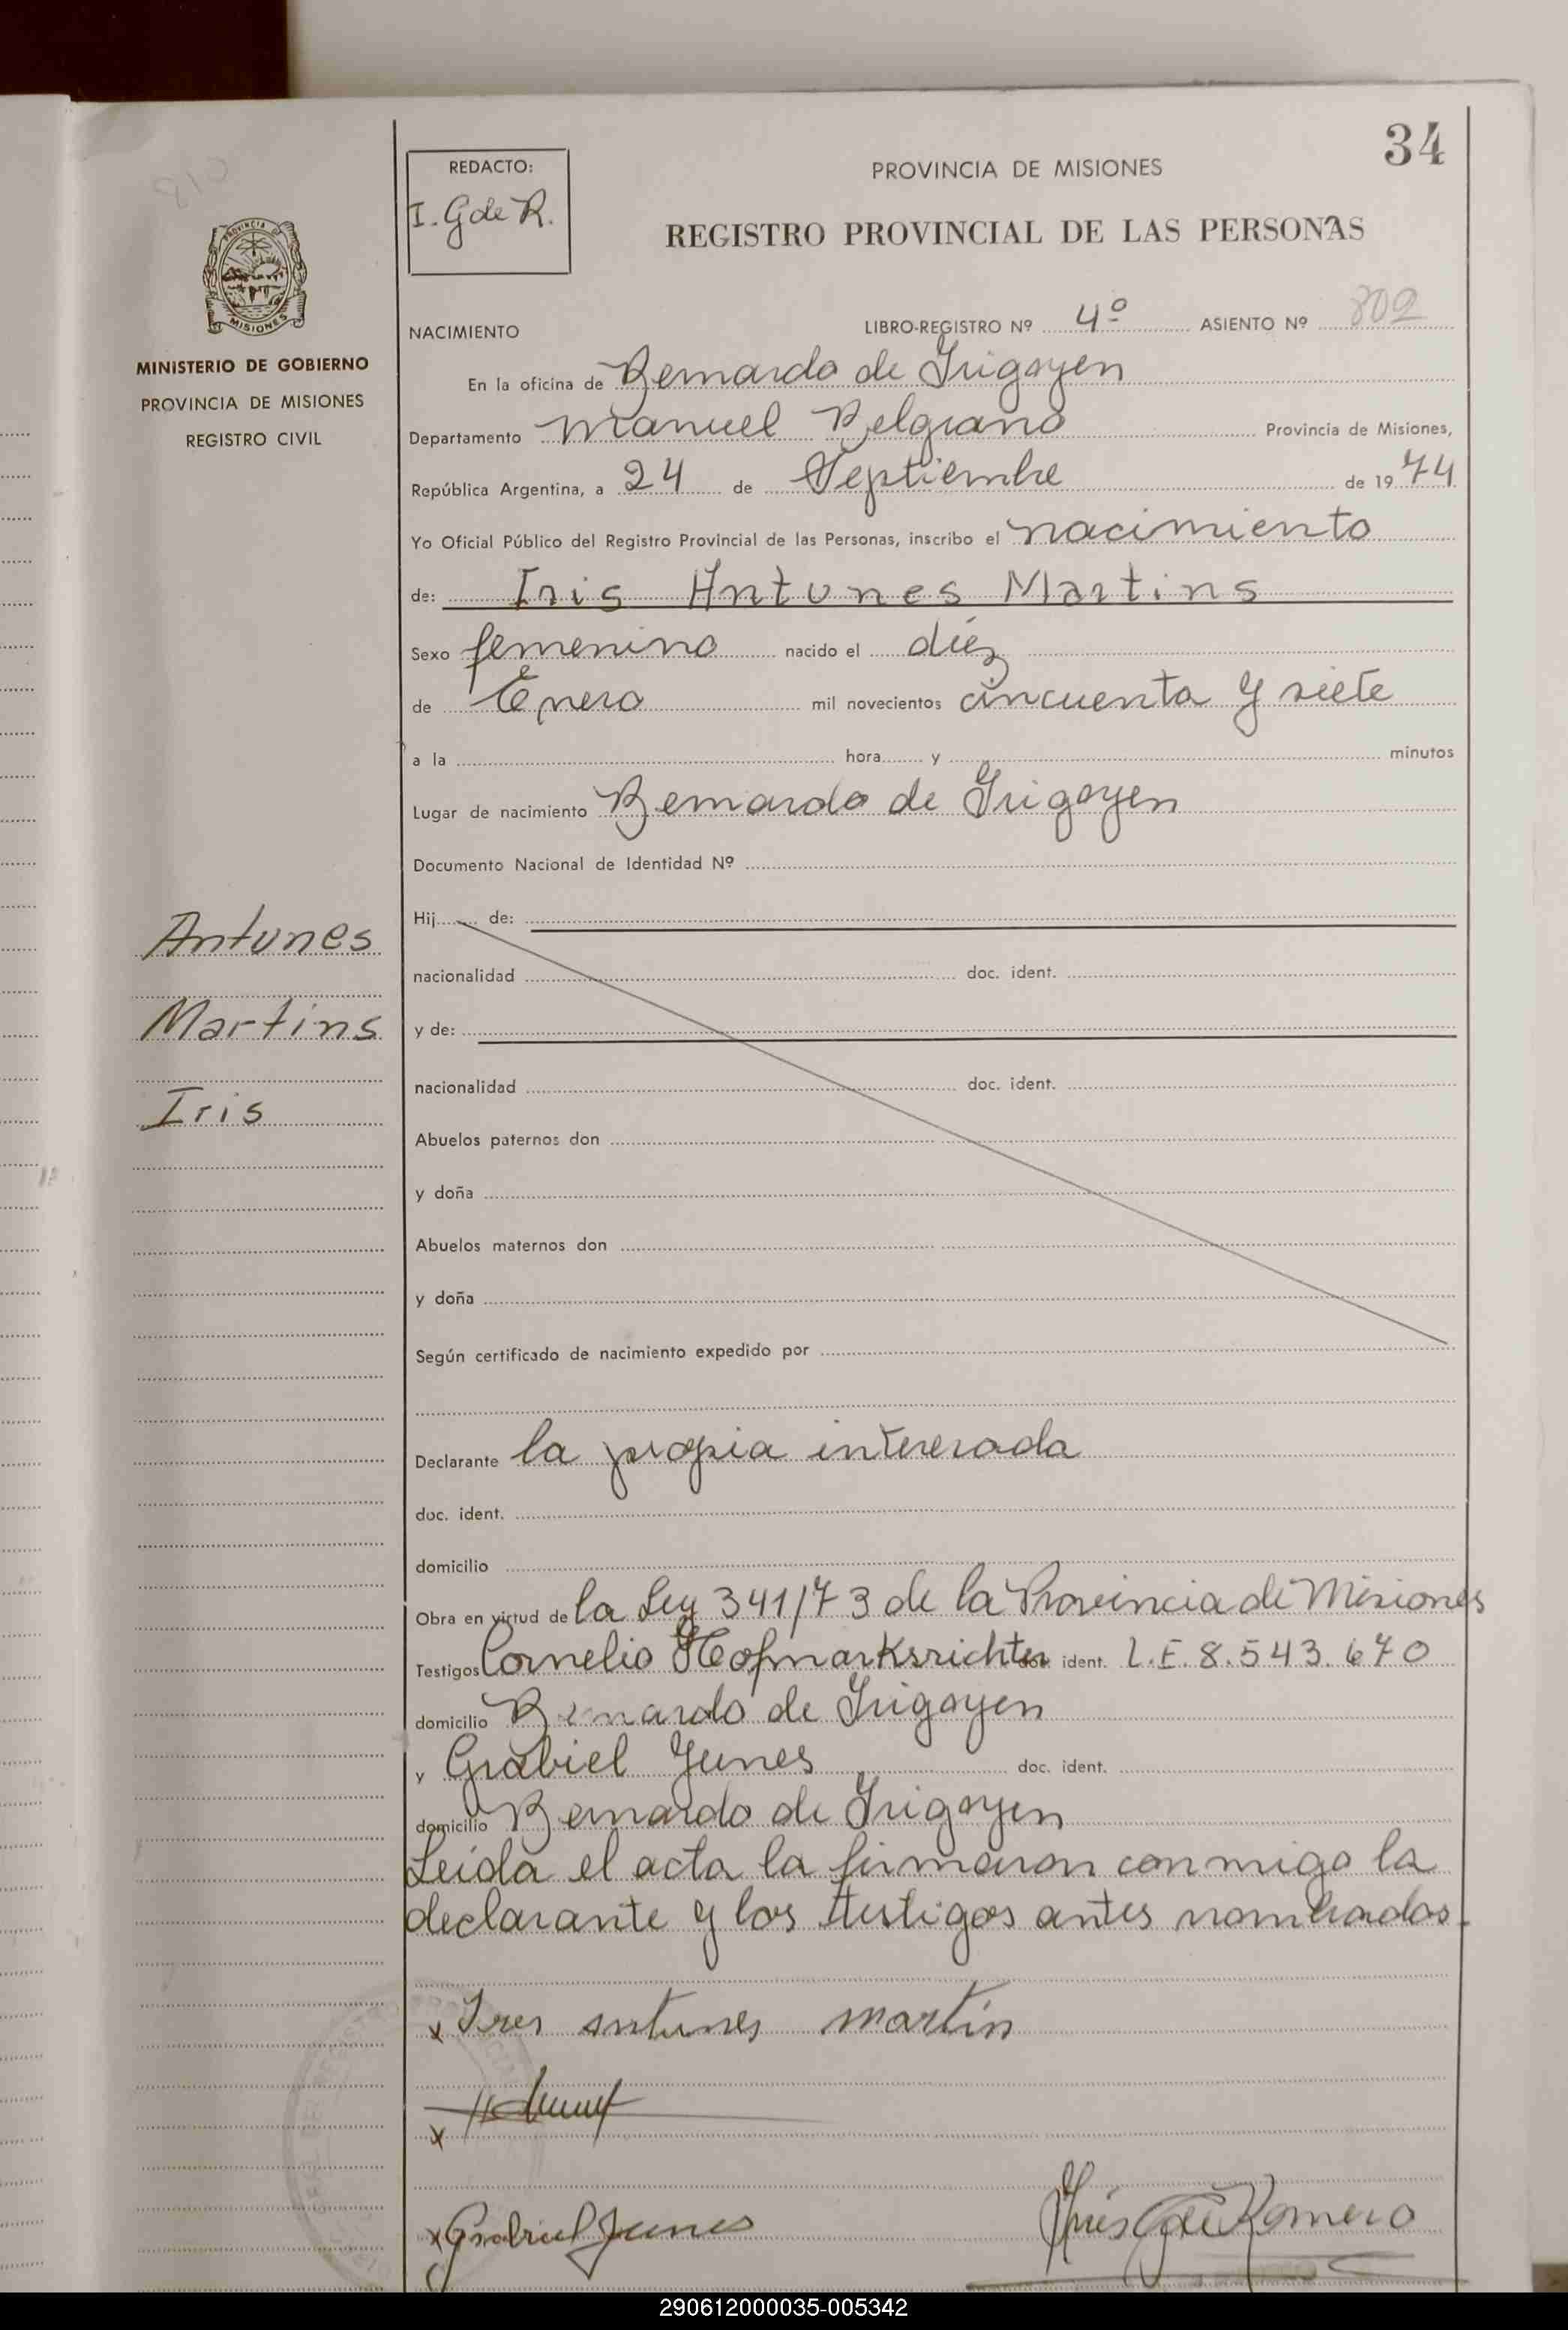 34
REDACTO:
I. G de R.
PROVINCIA DE MISIONES
REGISTRO PROVINCIAL DE LAS PERSONAS
PROVINCIA DE
MISIONES
MINISTERIO DE GOBIERNO
PROVINCIA DE MISIONES
REGISTRO CIVIL
NACIMIENTO LIBRO-REGISTRO Nº 4º ASIENTO Nº 802
En la oficina de Bernardo de Irigoyen
Departamento Manuel Belgrano Provincia de Misiones,
República Argentina, a 24 de Septiembre de 1974
Yo Oficial Público del Registro Provincial de las Personas, inscribo el nacimiento
de: Iris Antunes Martins
Sexo femenino nacido el diez
de Enero mil novecientos cincuenta y siete
a la hora y minutos
Lugar de nacimiento Bernardo de Irigoyen
Documento Nacional de Identidad Nº
Hij de:
Antunes
nacionalidad doc. ident.
Martins
y de:
nacionalidad doc. ident.
Iris
Abuelos paternos don
y doña
Abuelos maternos don
y doña
Según certificado de nacimiento expedido por
Declarante la propia interesada
doc. ident.
domicilio
Obra en virtud de la Ley 341/73 de la Provincia de Misiones
Testigos Cornelio Hofmarksrichter doc. ident. L.E. 8.543.670
domicilio Bernardo de Irigoyen
y Grabiel Junes doc. ident.
domicilio Bernardo de Irigoyen
Leída el acta la firmaron conmigo la
declarante y los testigos antes nombrados.
x Ires antunes martin
x
x Grabriel Junes Inés G de Romero
290612000035-005342